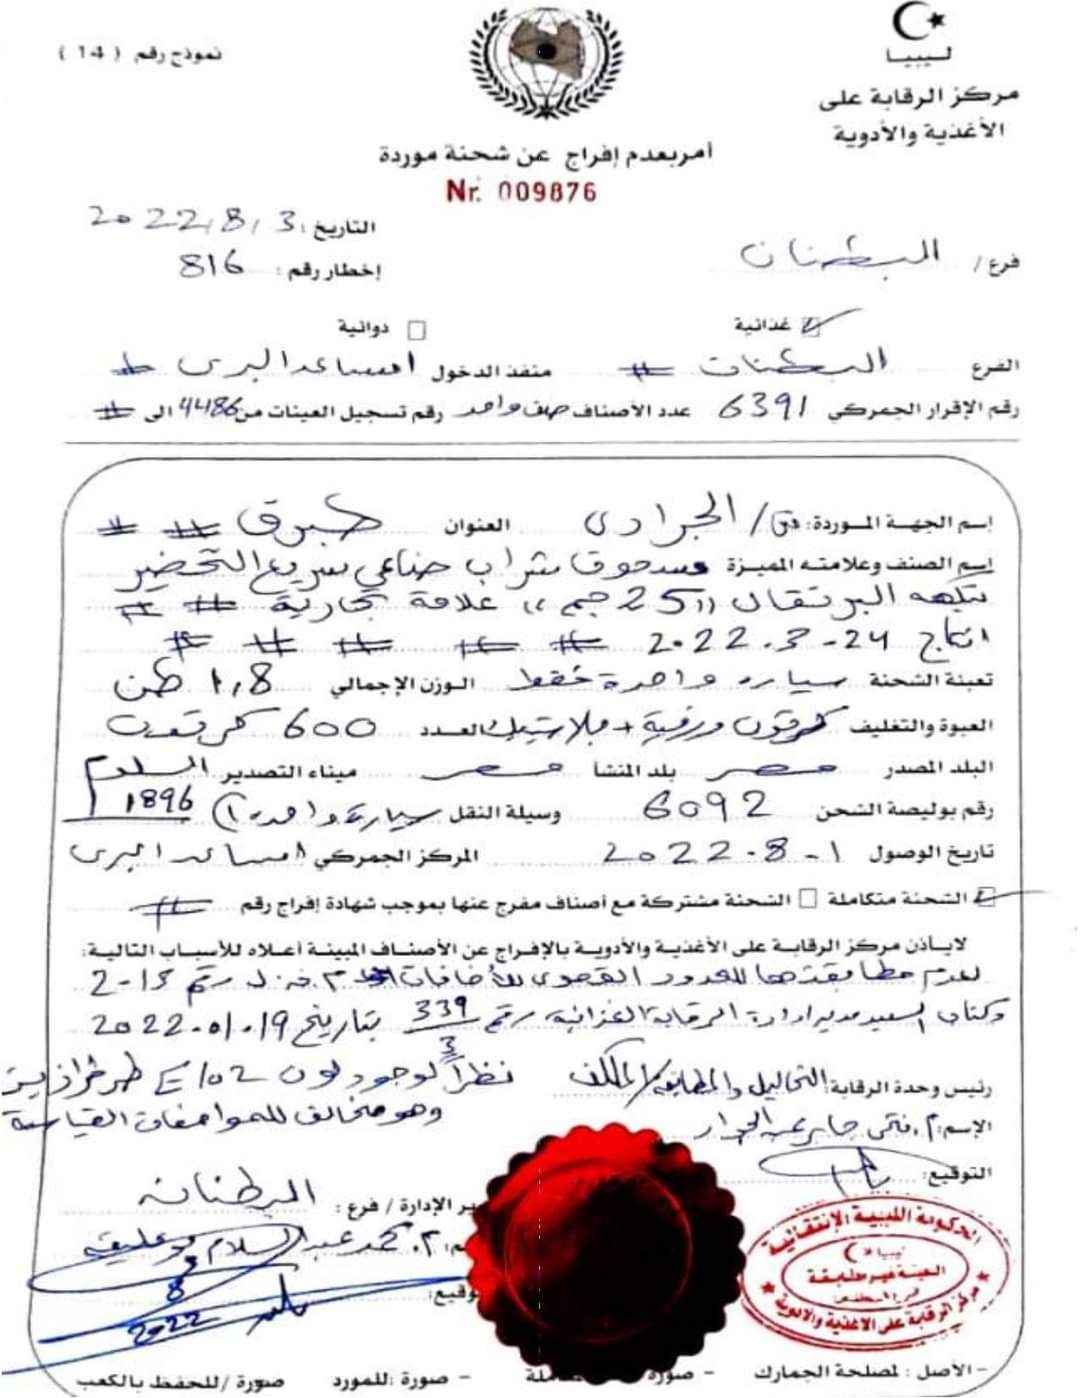 ليبيا
مركز الرقابة على
الأغذية والأدوية
نموذج رقم ( 14 )
أمر بعدم إفراج عن شحنة موردة
Nr. 009876
التاريخ : 3 / 8 / 2022
إخطار رقم : 816
فرع / البطنان
غذائية
دوائية
الفرع البطنان # منفذ الدخول امساعد البري #
رقم الإقرار الجمركي 6391 عدد الأصناف صنف واحد رقم تسجيل العينات من 4486 الى #
إسم الجهة الموردة : الجرادي العنوان طبرق # #
إسم الصنف وعلامته المميزة مسحوق شراب صناعي سريع التحضير
بنكهة البرتقال ((25 جم)) علامة تجارية # #
انتاج 24-3-2022 # # # # #
تعبئة الشحنة سيارة واحدة فقط الوزن الإجمالي 1,8 طن
العبوة والتغليف كرتون ورقية + بلاستيك العدد 600 كرتون
البلد المصدر مصر بلد المنشأ مصر ميناء التصدير السلوم
رقم بوليصة الشحن 6092 وسيلة النقل سيارة واحدة 1896
تاريخ الوصول 1-8-2022 المركز الجمركي امساعد البري
الشحنة متكاملة الشحنة مشتركة مع أصناف مفرج عنها بموجب شهادة إفراج رقم #
لايأذن مركز الرقابة على الأغذية والأدوية بالإفراج عن الأصناف المبينة أعلاه للأسباب التالية:
لعدم مطابقتها للحدود القصوى للأضافات
وكتاب السيد مدير ادارة الرقابة الغذائية رقم 339 بتاريخ 19-01-2022
رئيس وحدة الرقابة: التحاليل والمطابقة / المكلف
نظراً لوجود لون E 102 طرطرازين
وهو مخالف للمواصفات القياسية
الإسم: م. فتحي جابر
التوقيع:
ير الإدارة / فرع : البطنان
م. محمد عبد السلام
وقيع:
8
2022
الحكومة الليبية الإنتقالية
ليبيا
العينة غير مطابقة
مركز الرقابة على الاغذية والادوية
- الأصل : لمصلحة الجمارك - صورة - صورة : للمورد صورة / للحفظ بالكعب